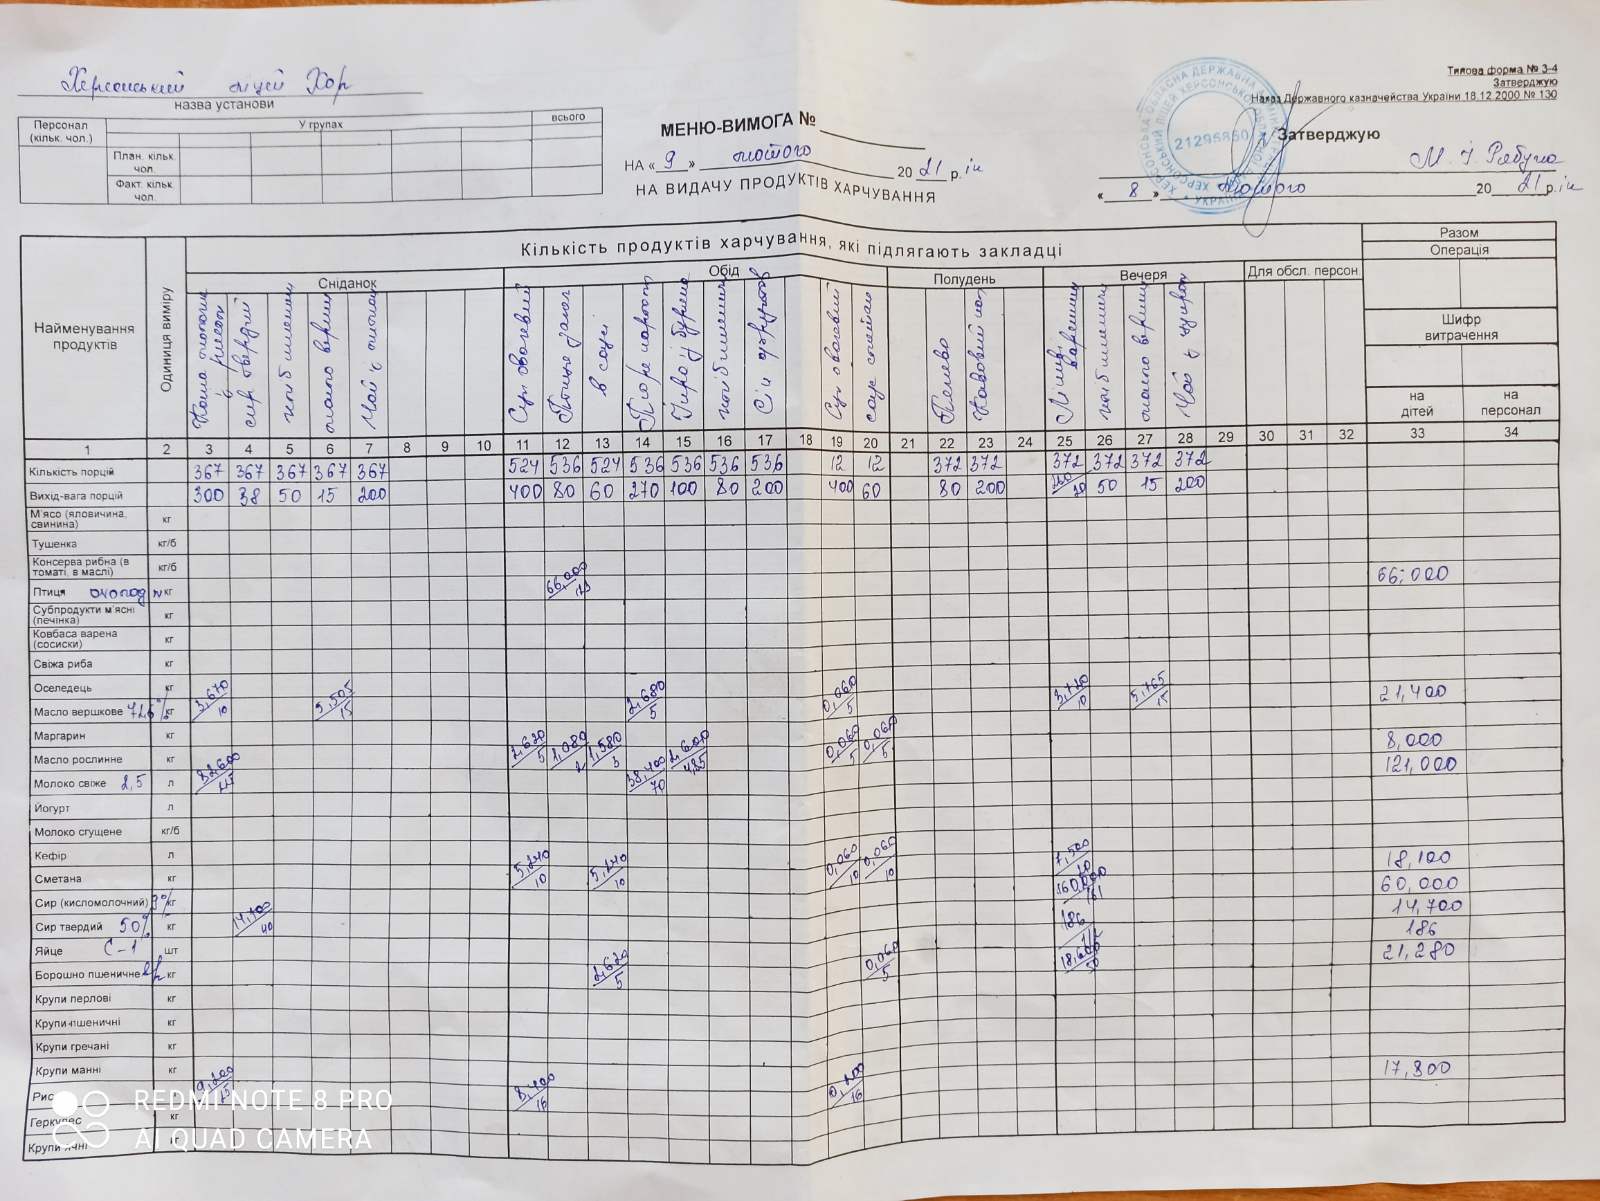 Херсонський ліцей Хор
назва установи
Типова форма № З-4
Затверджую
Наказ Державного казначейства України 18.12.2000 № 130
Персонал (кільк. чол.) У групах всього
План. кільк. чол.
Факт. кільк. чол.
МЕНЮ-ВИМОГА №
НА « 9 » лютого 2021 р.ік
НА ВИДАЧУ ПРОДУКТІВ ХАРЧУВАННЯ
21295850
Затверджую
М. І. Рябуха
« 8 » лютого 2021 р.ік
Найменування продуктів
Одиниця виміру
Кількість продуктів харчування, які підлягають закладці
Разом
Операція
Сніданок Обід Полудень Вечеря Для обсл. персон.
Шифр витрачення
на дітей
на персонал
сир твердий
масло вершк
Суп овочевий
Птиця
в соусі
Пюре картоп
хліб пшеничн
Сік фруктов
Суп овочевий
Печиво
Ліниві вареники
хліб пшеничн
масло вершк
Чай з цукром
1 2 3 4 5 6 7 8 9 10 11 12 13 14 15 16 17 18 19 20 21 22 23 24 25 26 27 28 29 30 31 32 33 34
Кількість порцій 367 367 367 367 367 524 536 524 536 536 536 536 12 12 372 372 372 372 372 372
Вихід-вага порцій 300 38 50 15 200 400 80 60 270 100 80 200 400 60 80 200 50 15 200
М'ясо (яловичина, свинина) кг
Тушенка кг/б
Консерва рибна (в томаті, в маслі) кг/б 66,000
Птиця кг 66,000
Субпродукти м'ясні (печінка) кг
Ковбаса варена (сосиски) кг
Свіжа риба кг
Оселедець кг
Масло вершкове 72,6% кг 3,670/10 5,505/15 2,680/5 0,060/5 3,720/10 5,765/15 21,400
Маргарин кг
Масло рослинне кг 2,620/5 1,080/2 1,580/3 2,600/4,85 0,060/5 0,060/5 8,000
Молоко свіже 2,5 л 82,600 38,400/70 121,000
Йогурт л
Молоко сгущене кг/б
Кефір л
Сметана кг 5,240/10 5,240/10 0,060/10 0,060/10 7,500/20 18,100
Сир (кисломолочний) 9% кг 60,000/161 60,000
Сир твердий 50% кг 14,700/40 14,700
Яйце С-1 шт 186 186
Борошно пшеничне кг 2,620/5 0,060/5 18,600/50 21,280
Крупи перлові кг
Крупи пшеничні кг
Крупи гречані кг
Крупи манні кг
Рис 9,200/25 8,400/16 0,200/16 17,800
Геркулес кг
Крупи ячні кг
REDMI NOTE 8 PRO
AI QUAD CAMERA